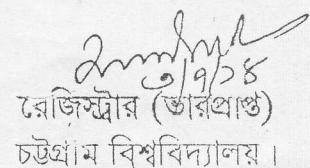 ৩/৭/১৪
রেজিস্ট্রার (ভারপ্রাপ্ত)
চট্টগ্রাম বিশ্ববিদ্যালয়।